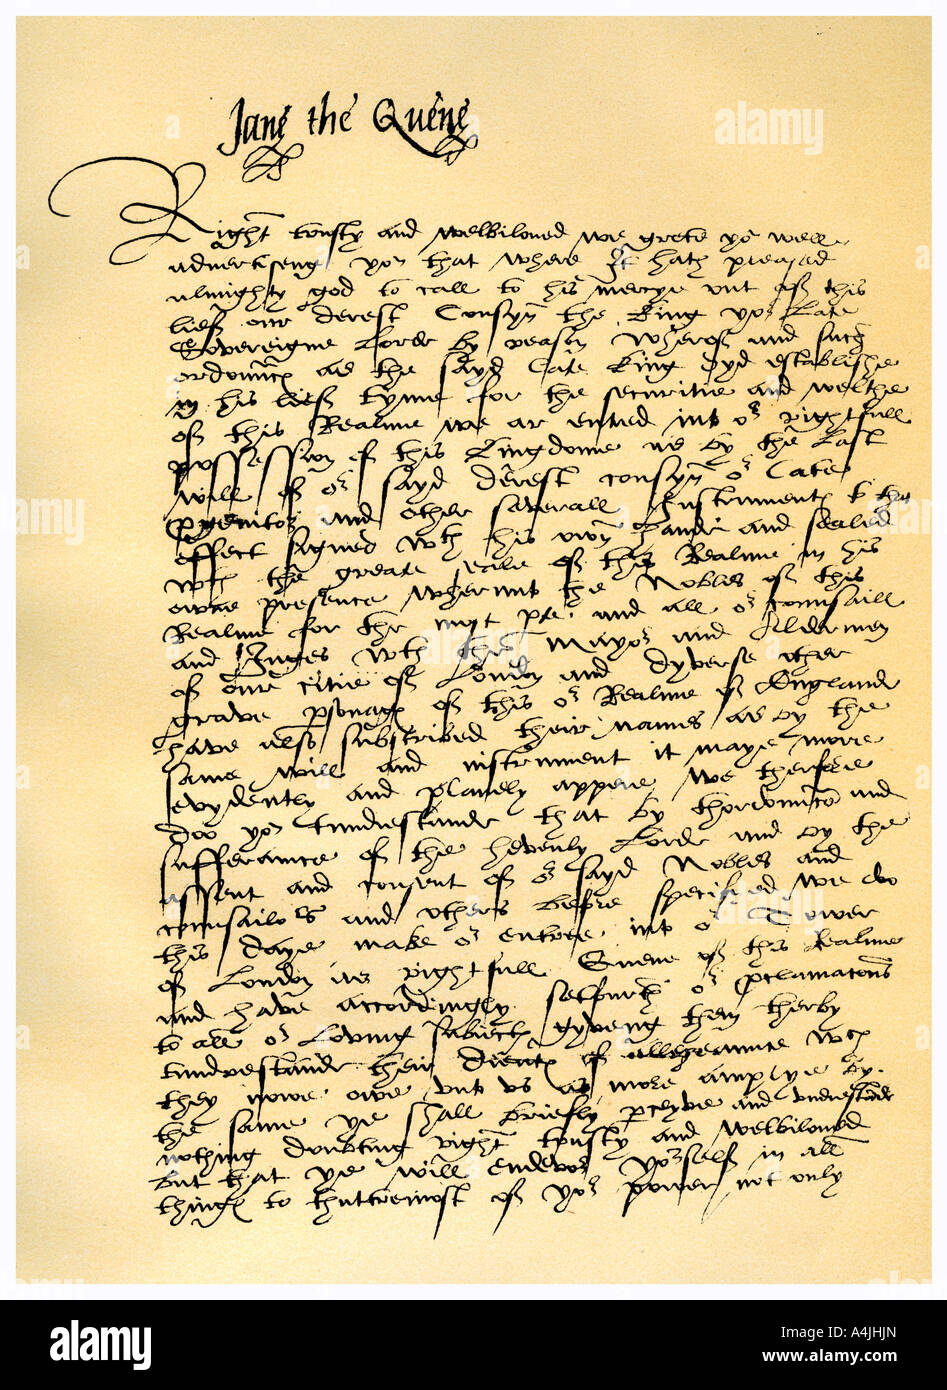 Jane the Quene
Right trusty and welbiloved we grete yor well
advertiseng yor that where it hath pleased
almighty god to call to his mercye out of this
lief our derest Cousyn the King yor late
Sovereigne Lorde by reason wherof and such
ordonnces as the sayd late King dyd establishe
in his lief tyme for the securitie and welthe
of this Realme we ar entred into or rightfull
possession of this Kingdome as by the last
will of or sayd derest cousyn or late
pgenitor and other severall Instruments to that
effect signed wth his own hande and sealed
wth the greate seale of this Realme in his
owne presence wherunto the Nobles of this
Realme for the most pte and all or counsaill
and Juges wth the Mayor and Aldermen
of our citie of London and dyverse other
grave psonages of this or Realme of England
have also subscribed their names as by the
same will and instrument it maye more
evydently and planely appere we therfore
doo yor tundrestande that by thordonnce and
sufferance of the hevenly Lorde and by the
assent and consent of or sayd Nobles and
counsailors and others before specified we do
this daye make or entree into or Tower
of London as rightfull Quene of this Realme
and have accordingly setfurth or pclamacons
to all or loving subiects gyveng them therby
tundrestande their dueties of allegeaunce wch
they nowe owe unto us as more amplye by
the same ye shall briefly pceyve and understande
nothing doubting right trusty and welbiloved
but that ye will endevor yorself in all
things to thuttermost of yor power not only
alamy
Image ID: A4JHJN
www.alamy.com